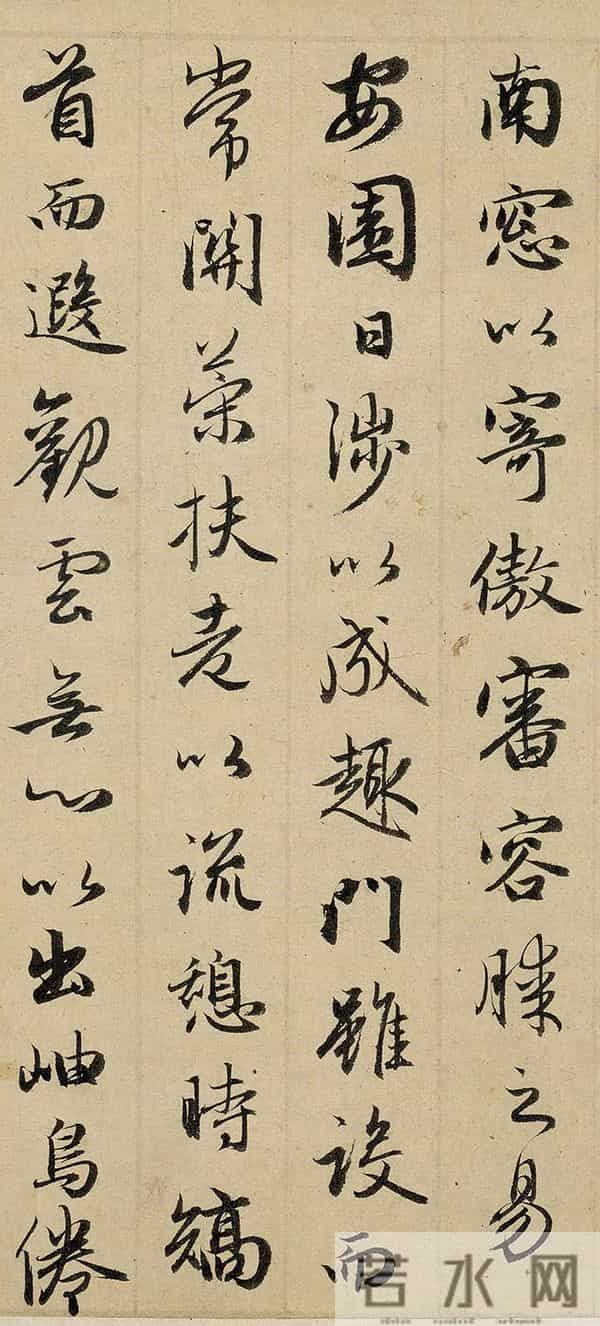 南窓以寄傲審容膝之易
安園日涉以成趣門雖設而
常關策扶老以流憩時矯
首而遐觀雲無心以出岫鳥倦
若水网